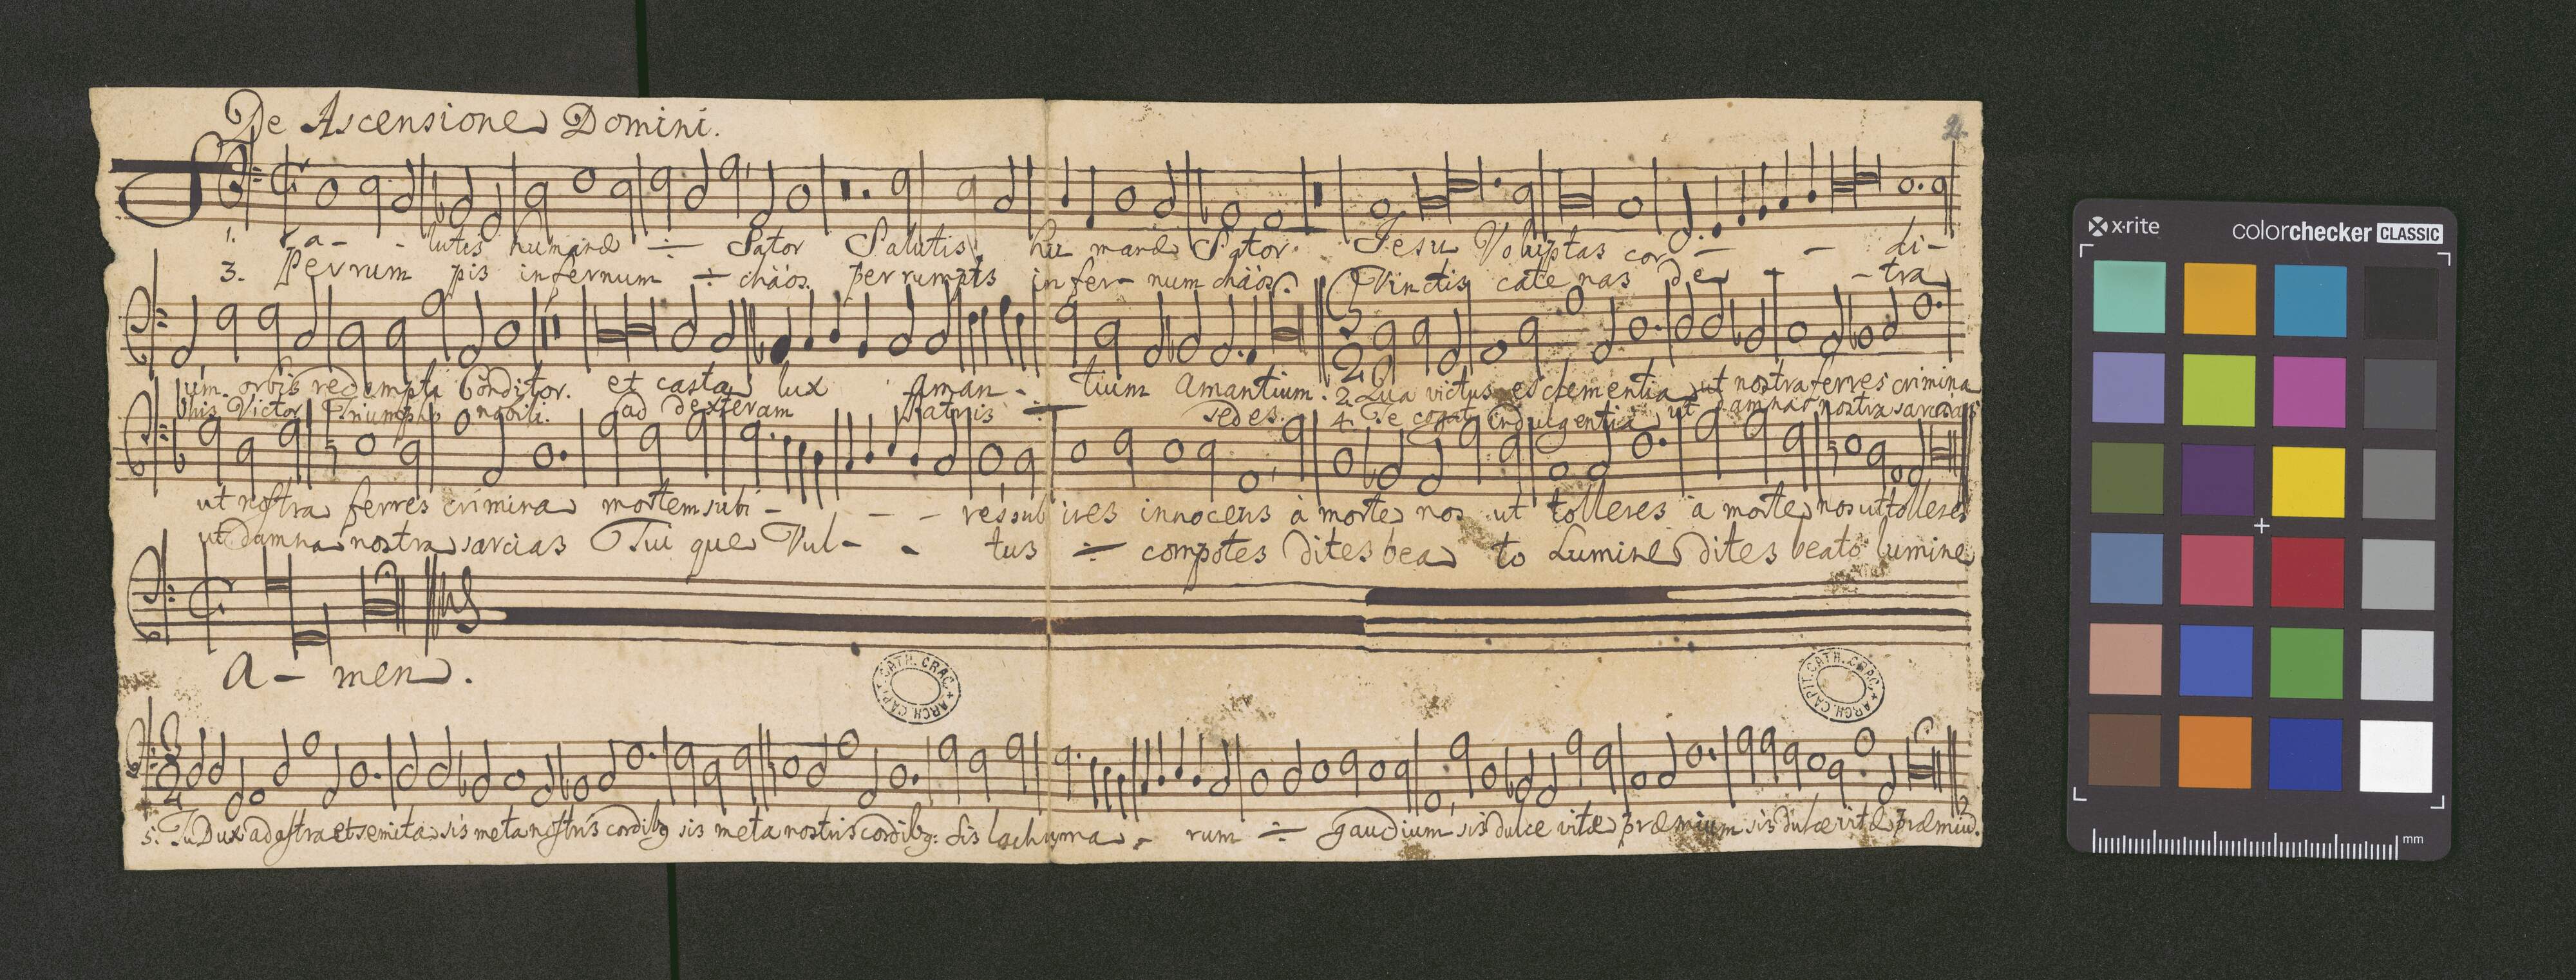 De Ascensione Domini.
2.
1. Sa- - lutis humanæ ÷ Sator Salutis hu manæ Sator. Jesu Voluptas cor - - di-
3. Perrum pis infernum ÷ chäos. perrumpis infer- num chäos. Vinctis catenas de - - tra
um orbis redempti Conditor. et casta lux aman- tium Amantium. 2. Qua victus es clementia ut nostra ferres crimina
his Victor Triumpho nobili. ad dexteram Patris ÷ sedes. 4. Te cogat indulgentia ut damna nostra sarcias
ut nostra ferres crimina mortem subi - - - res sub ires innocens à morte nos ut tolleres à morte nos ut tolleres
ut damna nostra sarcias Tui que Vul- - tus ÷ compotes dites bea to Lumine dites beato lumine
A- men.
ARCH. CAPIT. CATH. CRAC.
ARCH. CAPIT. CATH. CRAC.
5. Tu Dux ad astra et semita sis meta nostris cordibg sis meta nostris cordibg: sis lachyma - rum ÷ gaudium sis dulce vitæ præmium sis dulce vitæ præmiũ.
x-rite
colorchecker CLASSIC
mm